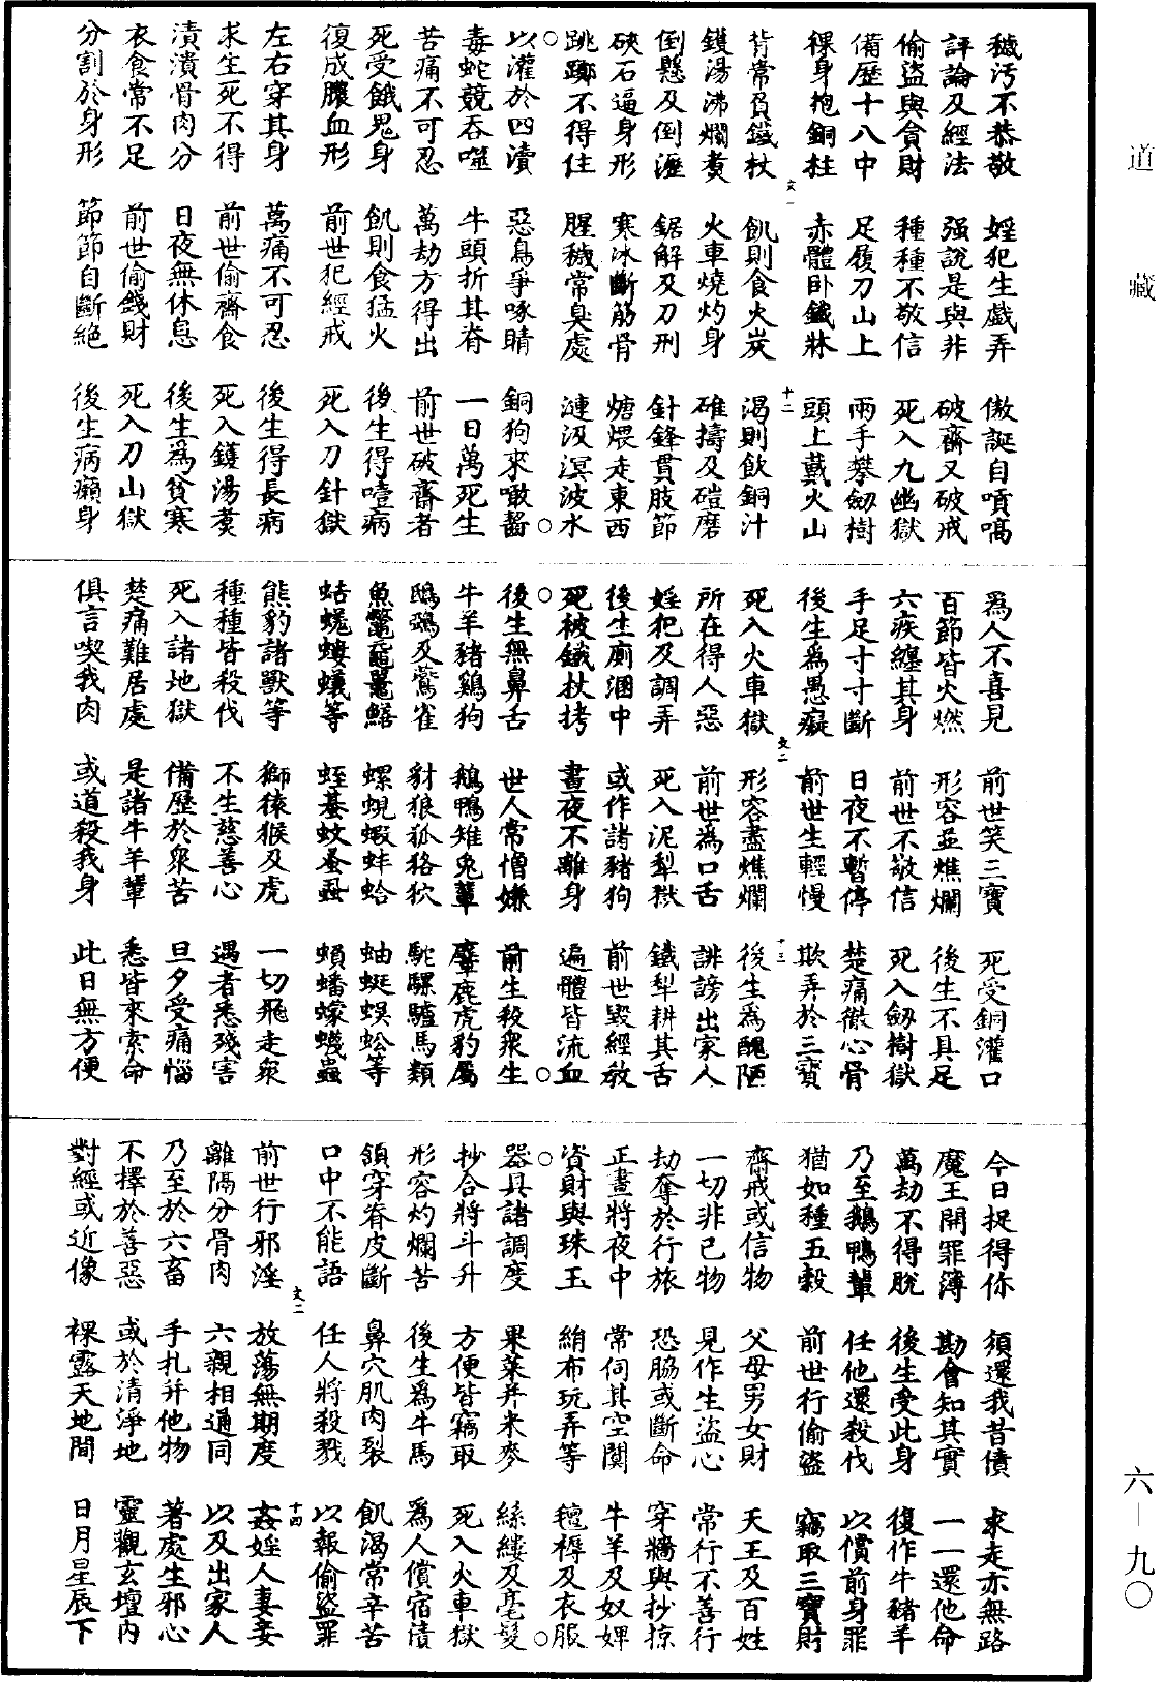 道藏
六—九〇
穢汚不恭敬 婬犯生戲弄 傲誕自嗔喎
評論及經法 强說是與非 破齋又破戒
偷盜與貪財 種種不敬信 死入九幽獄
備歷十八中 足履刀山上 兩手攀劒樹
裸身抱銅柱 赤體卧鐵牀 頭上戴火山
文一 十二
背常負鐵杖 飢則食火炭 渴則飲銅汁
鑊湯沸爛煑 火車燒灼身 碓擣及磑磨
倒懸及倒瀝 鋸解及刀刑 針鋒貫肢節
硤石逼身形 寒冰斷筋骨 煻煨走東西
跳躑不得住 腥穢常臭處 漣汲溟波水
以灌於四瀆 惡鳥爭啄睛 銅狗來噉齧
毒蛇競吞噬 牛頭折其脊 一日萬死生
苦痛不可忍 萬劫方得出 前世破齋者
死受餓鬼身 飢則食猛火 後生得噎病
復成膿血形 前世犯經戒 死入刀針獄
左右穿其身 萬痛不可忍 後生得長病
求生死不得 前世偷齋食 死入鑊湯煑
漬潰骨肉分 日夜無休息 後生爲貧寒
衣食常不足 前世偷錢財 死入刀山獄
分割於身形 節節自斷絶 後生病癩身
爲人不喜見 前世笑三寶 死受銅灌口
百節皆火燃 形容並燋爛 後生不具足
六疾纏其身 前世不敬信 死入劒樹獄
手足寸寸斷 日夜不暫停 楚痛徹心骨
後生爲愚癡 前世生輕慢 欺弄於三寶
文二 十三
死入火車獄 形容盡燋爛 後生爲醜陋
所在得人惡 前世爲口舌 誹謗出家人
婬犯及調弄 死入泥犁獄 鐵犁耕其舌
後生廁溷中 或作諸豬狗 前世毀經教
死被鐵杖拷 晝夜不離身 遍體皆流血
後生無鼻舌 世人常憎嫌 前生殺衆生
牛羊豬鷄狗 鵝鴨雉兎輩 麞鹿虎豹屬
鴟鴞及鶯雀 豺狼狐狢狖 駝騾驢馬類
魚鼈黿鼉鱔 螺蜆蝦蚌蛤 蚰蜒蜈蚣等
蛣蜣螻蟻等 蛭蟇蚊蚤蝨 蝢蟠蠓蠛蟲
熊豹諸獸等 獅猿猴及虎 一切飛走衆
種種皆殺伐 不生慈善心 遇者悉殘害
死入諸地獄 備歷於衆苦 旦夕受痛惱
楚痛難居處 是諸牛羊輩 悉皆來索命
俱言喫我肉 或道殺我身 此日無方便
今日捉得你 須還我昔債 求走亦無路
魔王開罪簿 勘會知其實 一一還他命
萬劫不得脫 後生受此身 復作牛豬羊
乃至鵝鴨輩 任他還殺伐 以償前身罪
猶如種五穀 前世行偷盜 竊取三寶財
齋戒或信物 父母男女財 天王及百姓
一切非己物 見作生盜心 常行不善行
劫奪於行旅 恐脇或斷命 穿牆與抄掠
正晝將夜中 常伺其空闃 牛羊及奴婢
資財與珠玉 絹布玩弄等 氊褥及衣服
器具諸調度 果菜并米麥 絲縷及毫髮
抄合將斗升 方便皆竊取 死入火車獄
形容灼爛苦 後生爲牛馬 爲人償宿債
領穿脊皮斷 鼻穴肌肉裂 飢渴常辛苦
口中不能語 任人將殺戮 以報偷盜罪
文二 十四
前世行邪淫 放蕩無期度 姦婬人妻妾
離隔分骨肉 六親相通同 以及出家人
乃至於六畜 手扎并他物 著處生邪心
不擇於善惡 或於清淨地 靈觀玄壇內
對經或近像 裸露天地間 日月星辰下